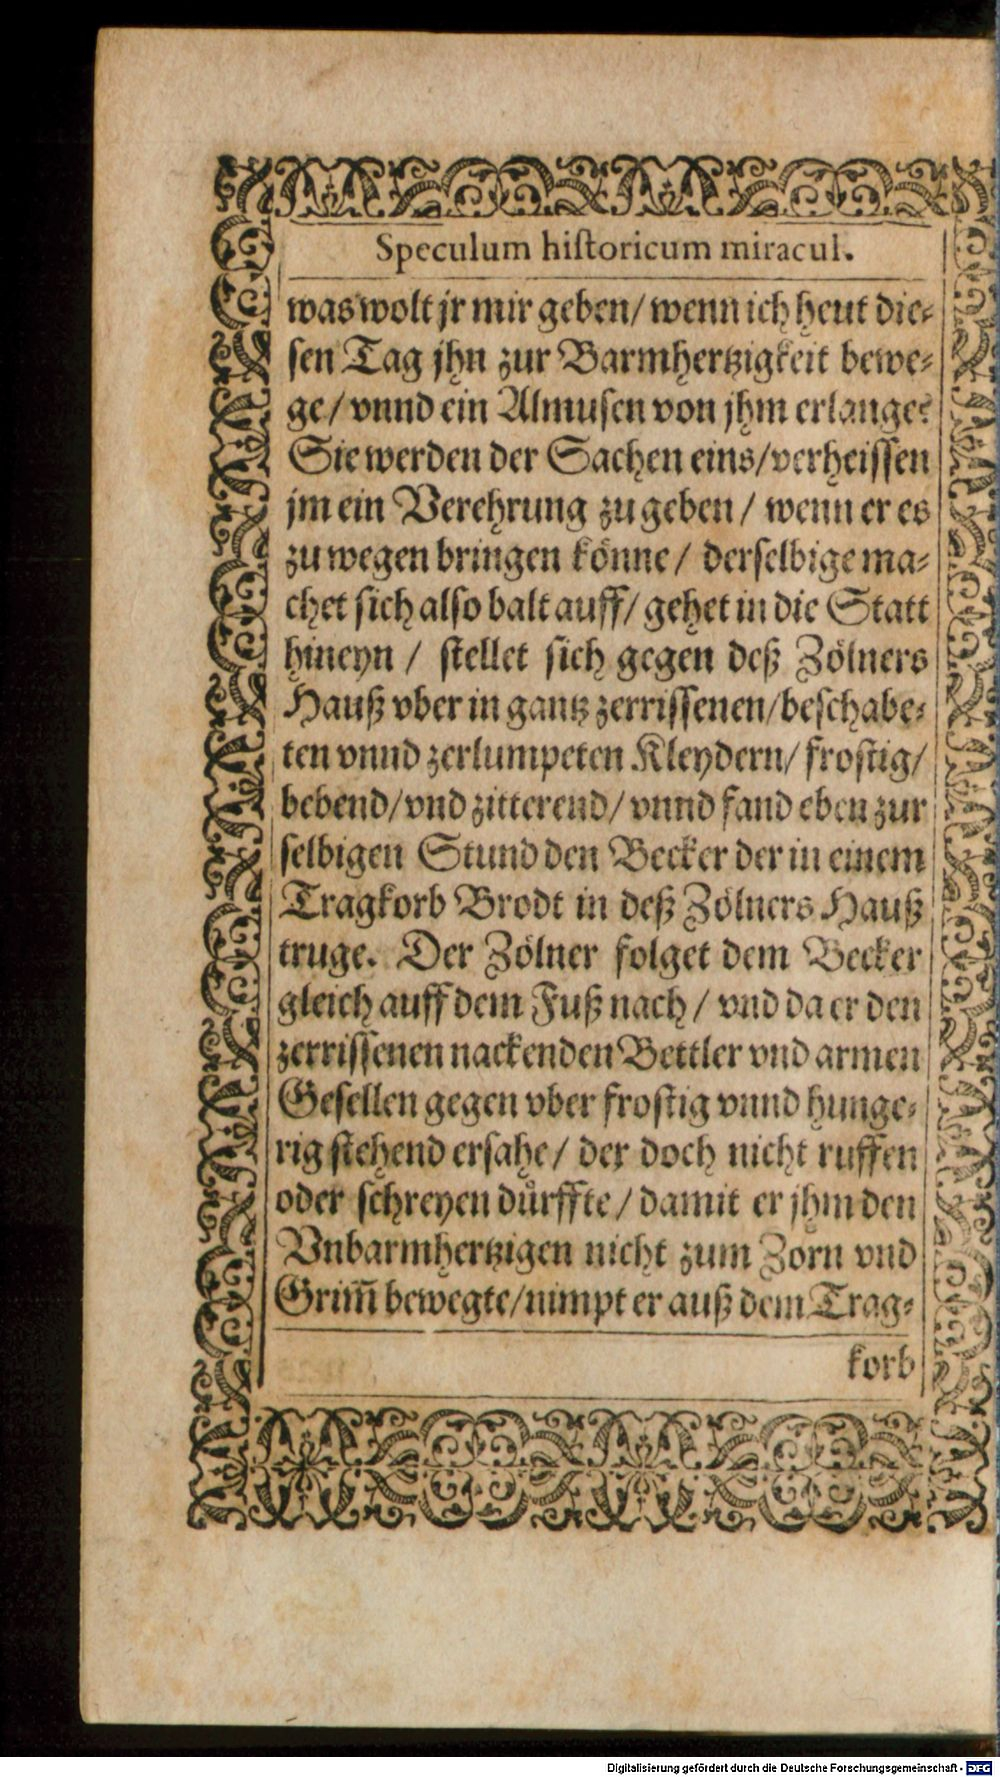 Speculum historicum miracul.
was wolt jr mir geben/ wenn ich heut die-
sen Tag jhn zur Barmhertzigkeit bewe-
ge/ vnnd ein Almusen von jhm erlange?
Sie werden der Sachen eins/ verheissen
jm ein Verehrung zu geben/ wenn er es
zu wegen bringen könne/ derselbige ma-
chet sich also balt auff/ gehet in die Statt
hineyn/ stellet sich gegen deß Zölners
Hauß vber in gantz zerrissenen/ beschabe-
ten vnnd zerlumpeten Kleydern/ frostig/
bebend/ vnd zitterend/ vnnd fand eben zur
selbigen Stund den Becker der in einem
Tragkorb Brodt in deß Zölners Hauß
truge. Der Zölner folget dem Becker
gleich auff dem Fuß nach/ vnd da er den
zerrissenen nackenden Bettler vnd armen
Gesellen gegen vber frostig vnnd hunge-
rig stehend ersahe/ der doch nicht ruffen
oder schreyen dürffte/ damit er jhm den
Vnbarmhertzigen nicht zum Zorn vnd
Grim̃ bewegte/ nimpt er auß dem Trag-
korb
Digitalisierung gefördert durch die Deutsche Forschungsgemeinschaft - DFG